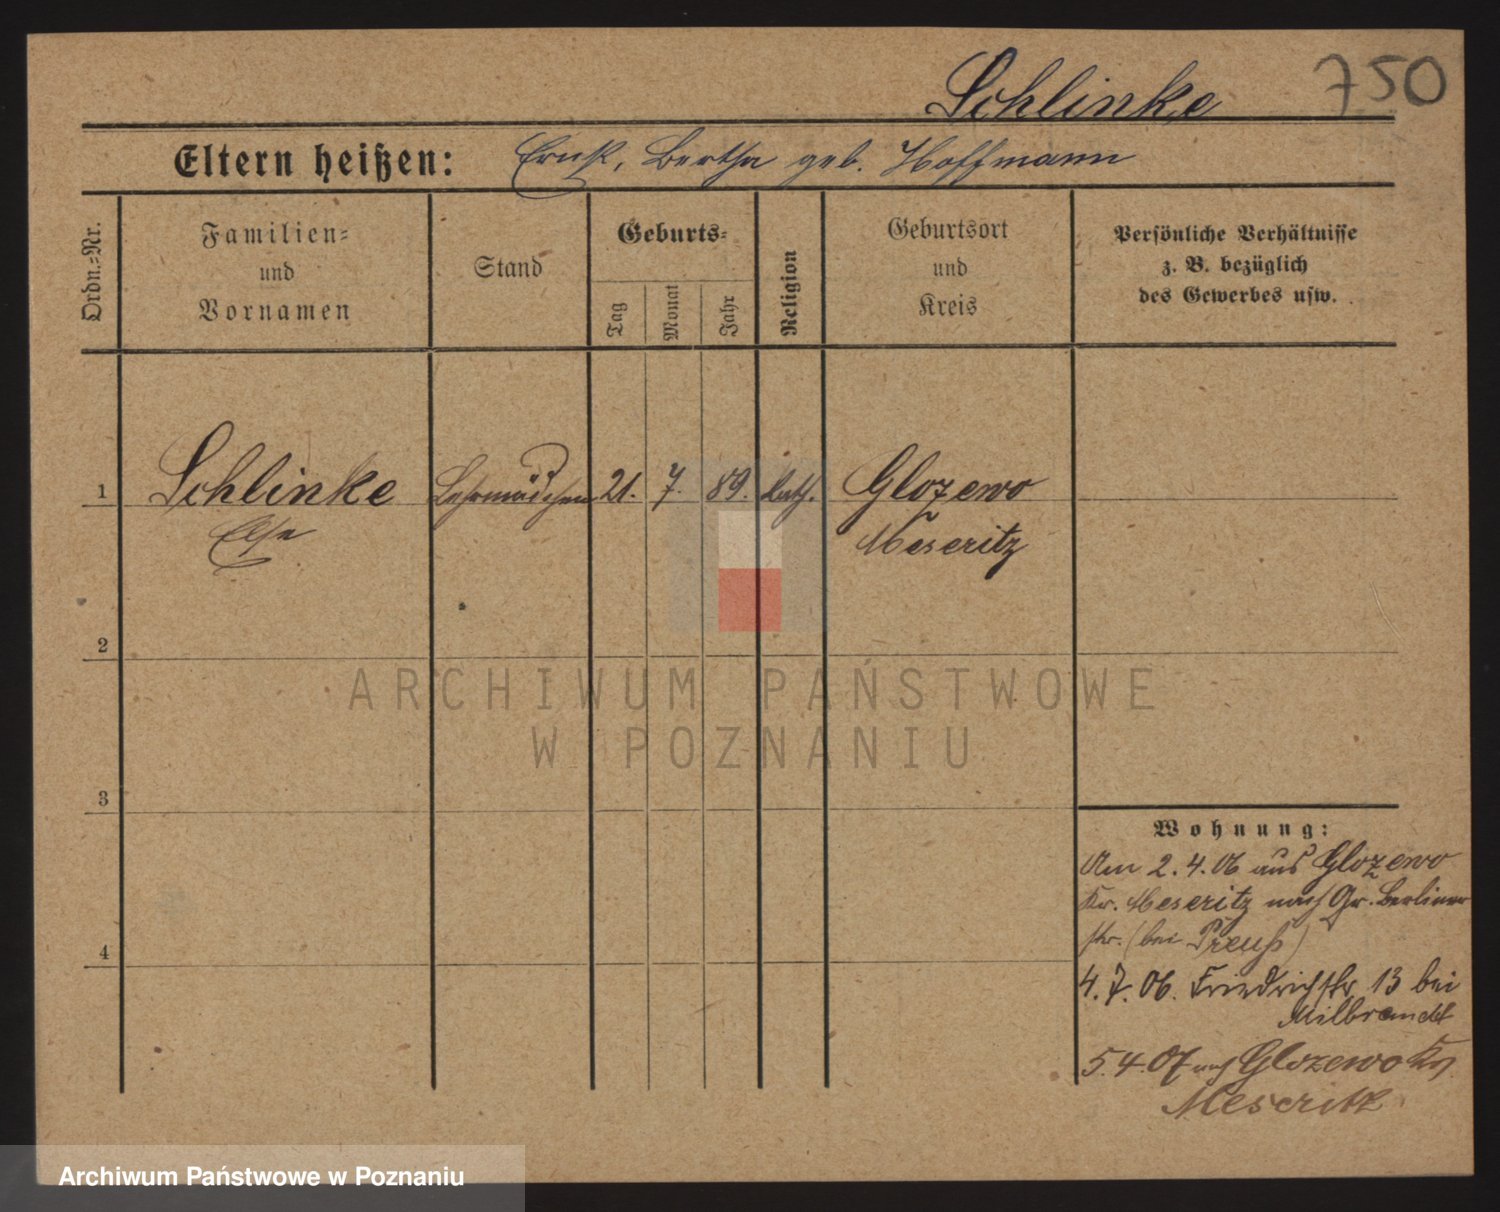 Schlinke 750
Eltern heißen: Ernst, Bertha geb. Hoffmann
Ordn.-Nr.
Familien- und Vornamen
Stand
Geburts-
Tag Monat Jahr
Religion
Geburtsort und Kreis
Persönliche Verhältnisse
z. B. bezüglich
des Gewerbes usw.
1 Schlinke Lehrmädchen 21. 7. 89. kath. Glozewo
Else Meseritz
2
ARCHIWUM PAŃSTWOWE
W POZNANIU
3
Wohnung:
Am 2.4.06 aus Glozewo
Kr. Meseritz nach Gr. Berliner
str. (bei Preuß)
4
4.7.06. Friedrichstr. 13 bei
Milbrandt
5.4.07 nach Glozewo Kr.
Meseritz
Archiwum Państwowe w Poznaniu